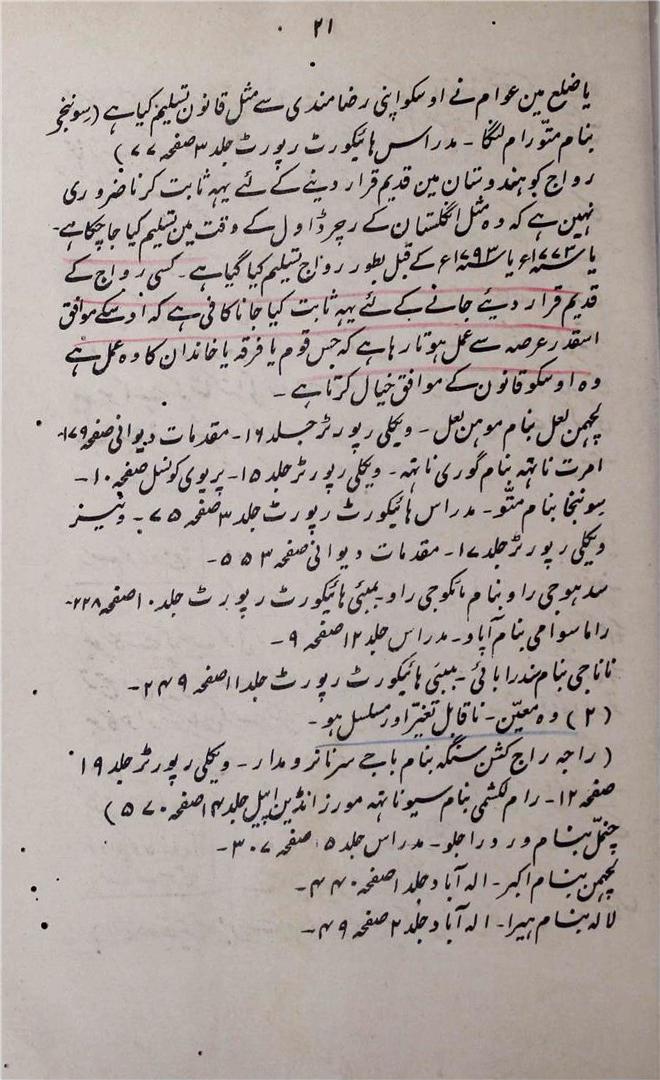 ۲۱
یا ضلع مین عوام نے اوسکو اپنی رضامندی سے مثل قانون تسلیم کیا ہے (سونجی
بنام متّو رام لنگا - مدراس ہائیکورٹ رپورٹ جلد ۳ صفحہ ۷۷)
رواج کو ہندوستان مین قدیم قرار دینے کے لئے یہہ ثابت کرنا ضروری
نہین ہے کہ وہ مثل انگلستان کے رچرڈ اول کے وقت مین تسلیم کیا جا چکا ہے -
یا سنہ ۱۷۷۳ء یا سنہ ۱۷۹۳ء کے قبل بطور رواج تسلیم کیا گیا ہے - کسی رواج کے
قدیم قرار دیئے جانے کے لئے یہہ ثابت کیا جانا کافی ہے کہ اوسکے موافق
اسقدر عرصہ سے عمل ہوتا رہا ہے کہ جس قوم یا فرقہ یا خاندان کا وہ عمل ہے
وہ اوسکو قانون کے موافق خیال کرتا ہے -
لچھمن لعل بنام موہن لعل - ویکلی رپورٹر جلد ۱۶ - مقدمات دیوانی صفحہ ۱۷۹ -
امرت ناتہہ بنام گوری ناتہہ - ویکلی رپورٹر جلد ۱۵ - پریوی کونسل صفحہ ۱۰ -
سونجا بنام متّو - مدراس ہائیکورٹ رپورٹ جلد ۳ صفحہ ۷۵ - ونیز
ویکلی رپورٹر جلد ۱۷ - مقدمات دیوانی صفحہ ۵۵۳ -
سدہوجی راو بنام مانکوجی راو - بمبئی ہائیکورٹ رپورٹ جلد ۱۰ صفحہ ۲۲۸ -
راما سوامی بنام آپاو - مدراس جلد ۱۲ صفحہ ۹ -
ناناجی بنام سندرابائی - بمبئی ہائیکورٹ رپورٹ جلد ۱۱ صفحہ ۲۴۹ -
(۲) وہ معیّن - ناقابل تغیّر اور مسلسل ہو -
(راجہ راج کشن سنگہہ بنام باجے سرنا نرومدار - ویکلی رپورٹر جلد ۱۹
صفحہ ۱۲ - رام لکشمی بنام سیوناتہہ مورز انڈین اپیل جلد ۱۴ صفحہ ۵۷۰)
چنمّل بنام ورد راجلو - مدراس جلد ۱۵ صفحہ ۳۰۷ -
لچھمن بنام اکبر - الہ آباد جلد ۱ صفحہ ۴۴۰ -
لالہ بنام ہیرا - الہ آباد جلد ۲ صفحہ ۴۹ -